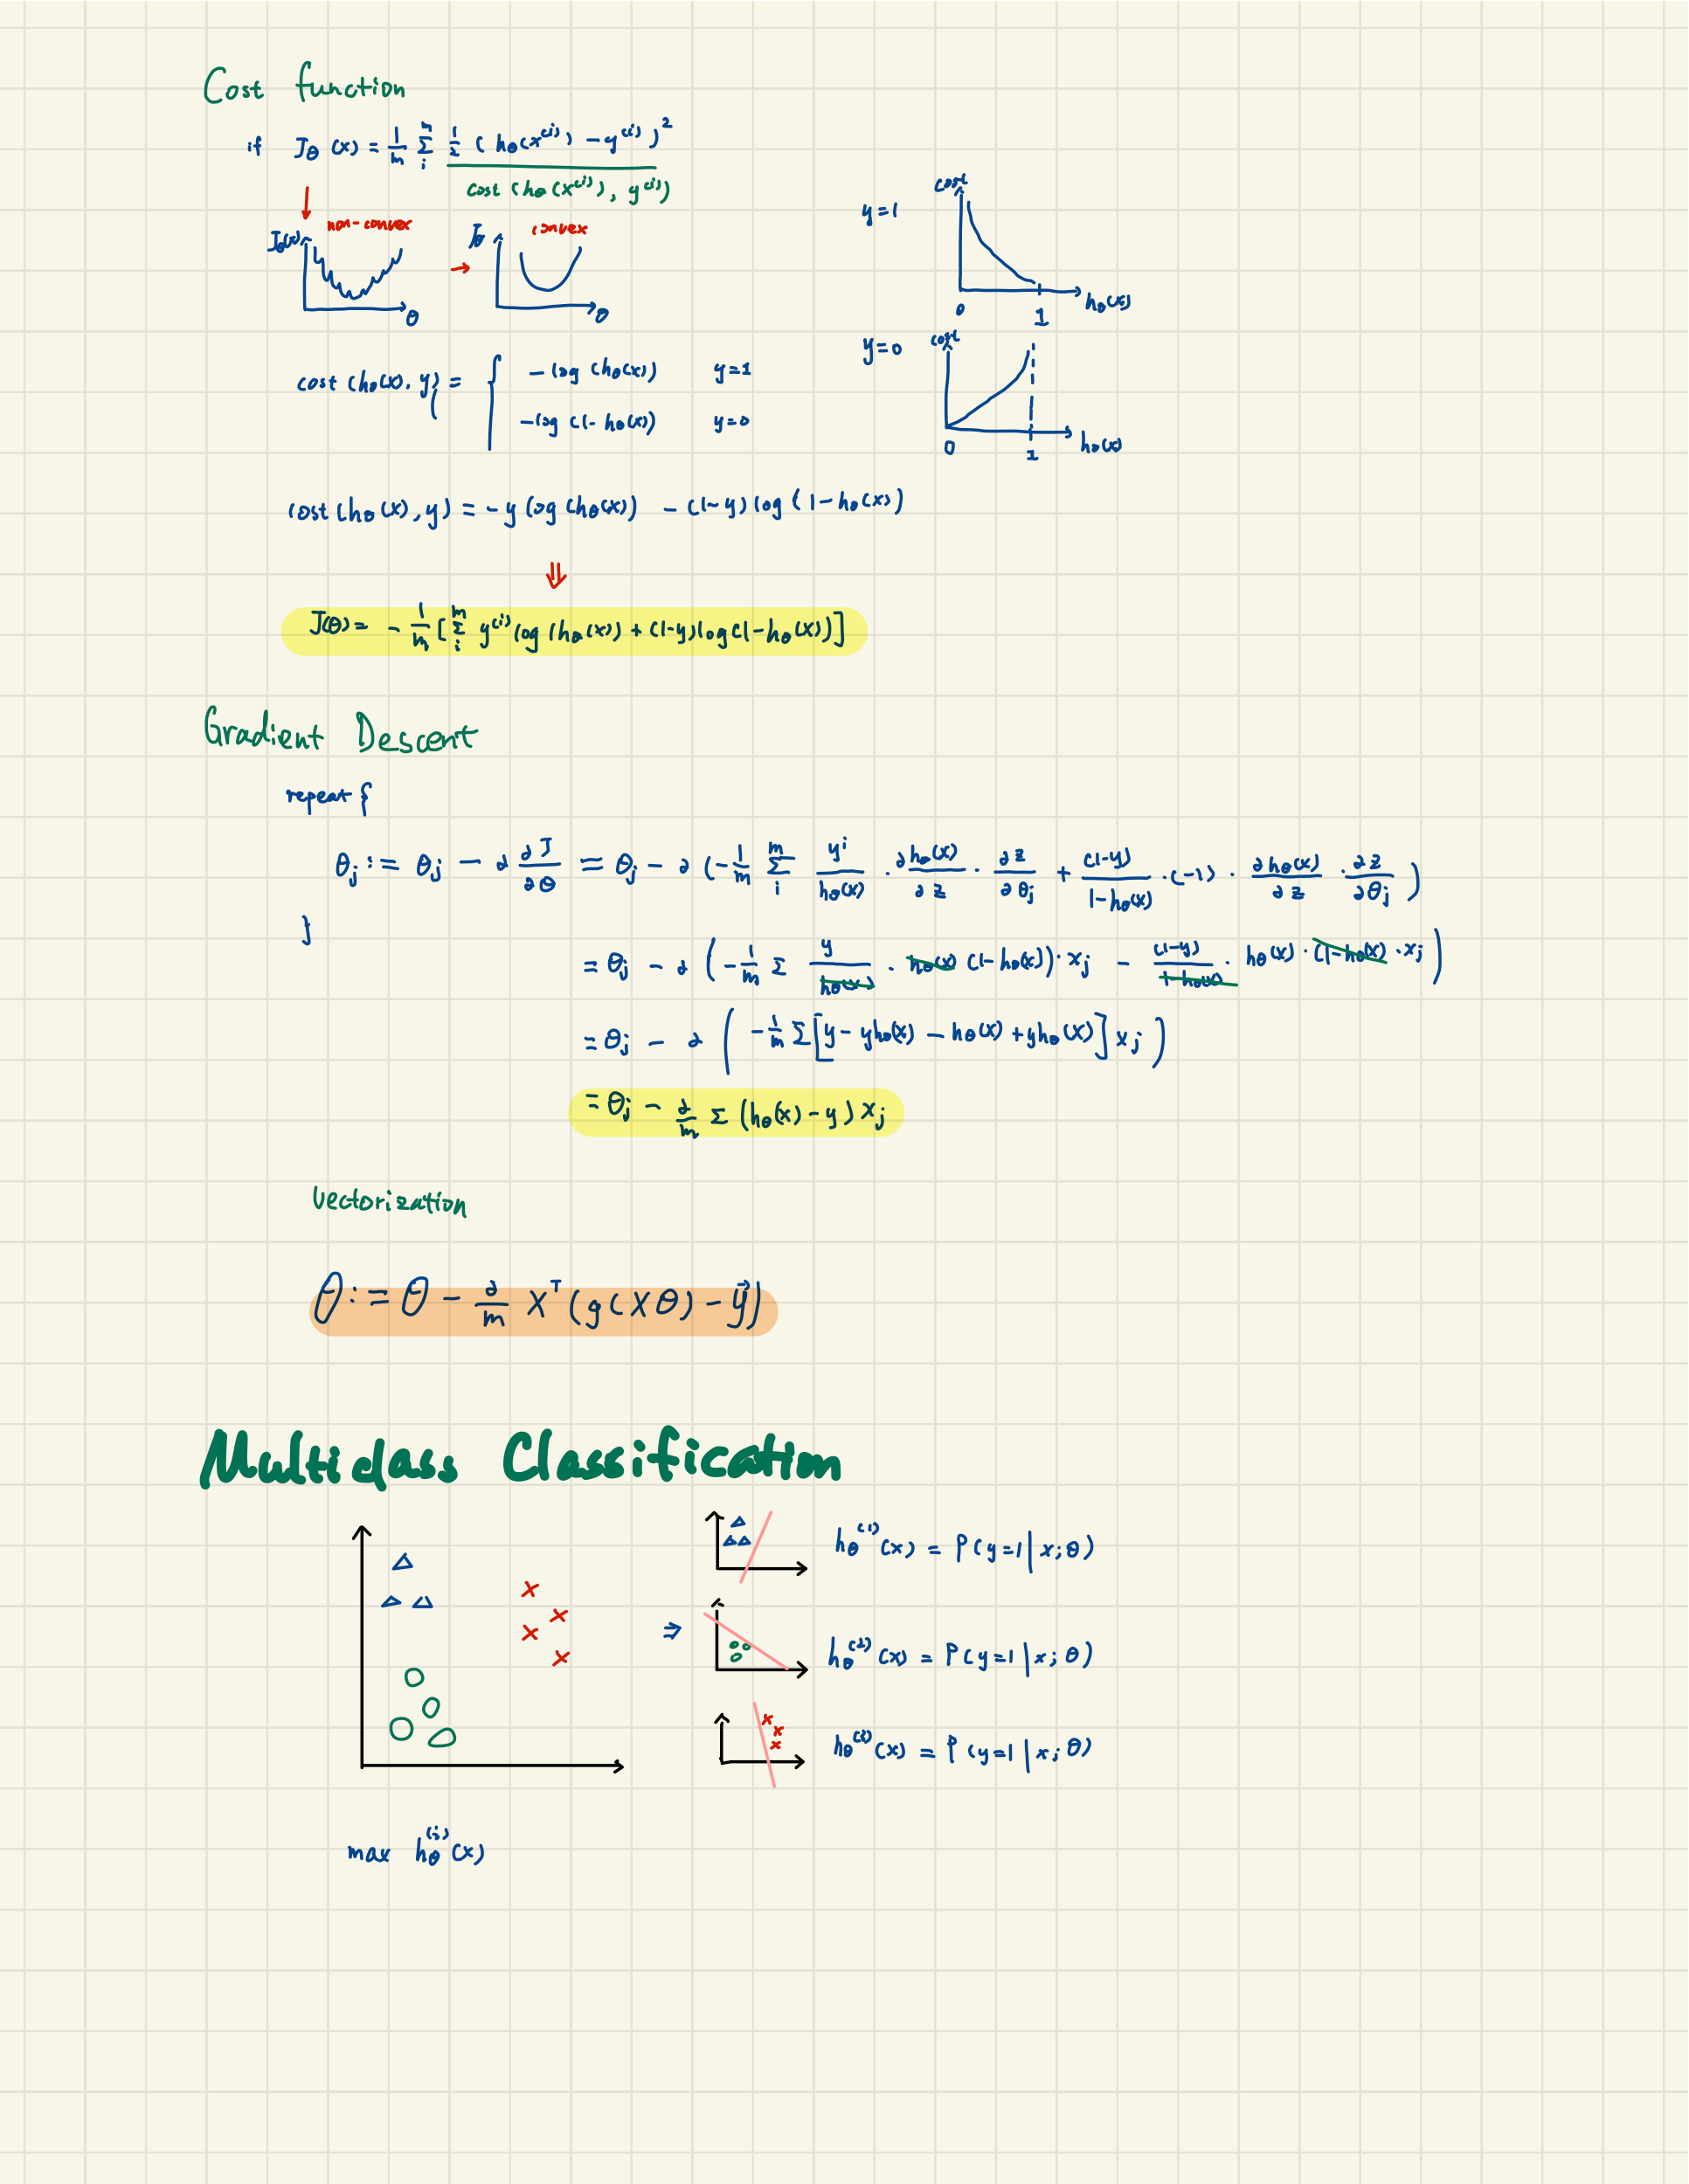 Cost function
if J_θ(x) = 1/m Σ_i^m 1/2 (h_θ(x^(i)) - y^(i))^2
cost (h_θ(x^(i)), y^(i))
J_θ(x) non-convex θ → J_θ convex θ
y=1 cost 0 1 h_θ(x)
y=0 cost 0 1 h_θ(x)
cost (h_θ(x), y) = {
-log (h_θ(x)) y=1
-log (1-h_θ(x)) y=0
cost (h_θ(x), y) = -y log (h_θ(x)) - (1-y) log (1-h_θ(x))
⇓
J(θ) = -1/m [Σ_i^m y^(i) log (h_θ(x)) + (1-y) log (1-h_θ(x))]
Gradient Descent
repeat {
θ_j := θ_j - ∂ ∂J/∂θ = θ_j - ∂ (-1/m Σ_i^m y^i/h_θ(x) · ∂h_θ(x)/∂z · ∂z/∂θ_j + (1-y)/(1-h_θ(x)) · (-1) · ∂h_θ(x)/∂z · ∂z/∂θ_j)
}
= θ_j - ∂ (-1/m Σ y/h_θ(x) · h_θ(x) (1-h_θ(x)) · x_j - (1-y)/(1-h_θ(x)) · h_θ(x) · (1-h_θ(x)) · x_j)
= θ_j - ∂ (-1/m Σ [y - yh_θ(x) - h_θ(x) + yh_θ(x)] x_j)
= θ_j - ∂/m Σ (h_θ(x) - y) x_j
Vectorization
θ := θ - ∂/m X^T (g(Xθ) - y⃗)
Multiclass Classification
⇒
h_θ^(1)(x) = P(y=1|x;θ)
h_θ^(2)(x) = P(y=1|x;θ)
h_θ^(3)(x) = P(y=1|x;θ)
max h_θ^(i)(x)